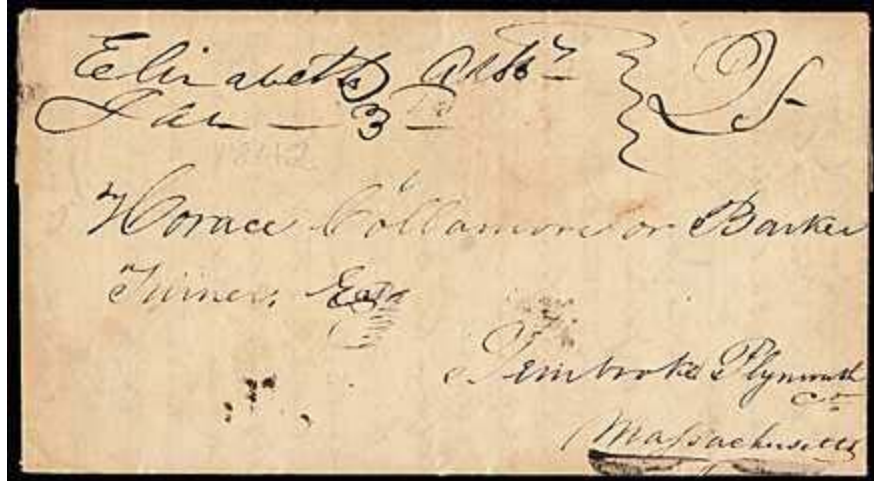 Elizabeth
Jan — 3rd
1842
Horace Collamore or Barker
Turner, Esqr
Pembroke Plymouth
Co
Massachusetts